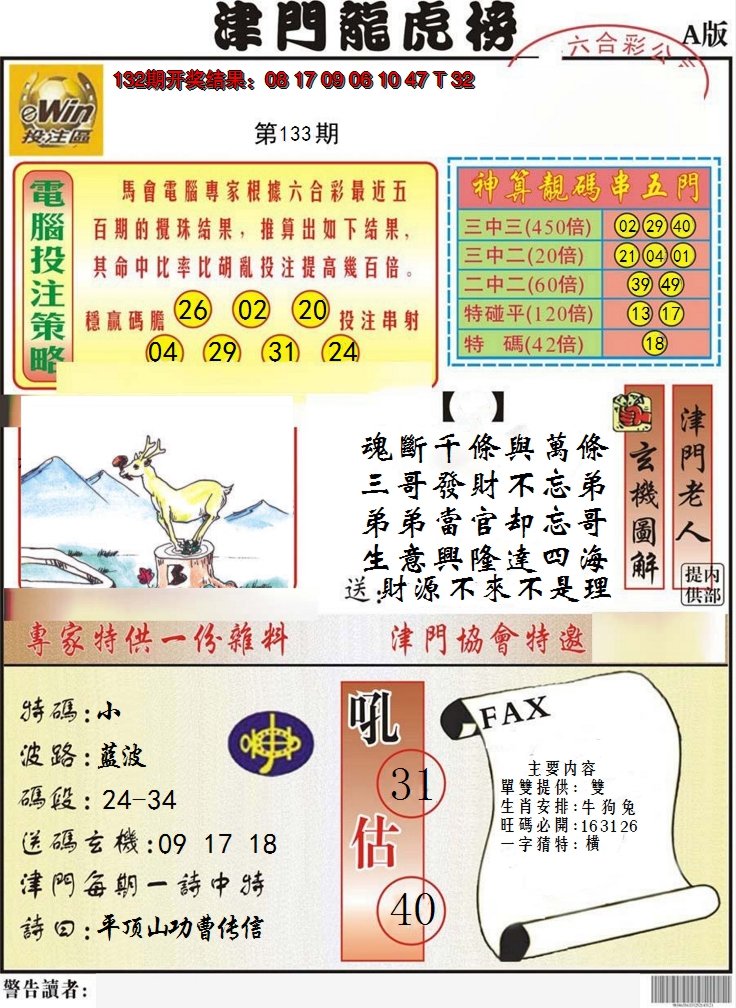 津門龍虎榜
六合彩公
A版
eWin
投注區
132期开奖结果：08 17 09 06 10 47 T 32
第133期
電腦投注策略
馬會電腦專家根據六合彩最近五
百期的攪珠结果，推算出如下结果，
其命中比率比胡亂投注提高幾百倍。
穩赢碼膽 26 02 20 投注串射
04 29 31 24
神算靚碼串五門
三中三(450倍) 02 29 40
三中二(20倍) 21 04 01
二中二(60倍) 39 49
特碰平(120倍) 13 17
特 碼(42倍) 18
【 】
魂斷千條與萬條
三哥發財不忘弟
弟弟當官却忘哥
生意興隆達四海
送:財源不來不是理
玄機圖解
津門老人
内部提供
專家特供一份雜料
津門協會特邀
特碼:小
波路:藍波
碼段:24-34
送碼玄機:09 17 18
津門每期一詩中特
詩曰:平顶山功曹传信
吼
31
估
40
FAX
主要内容
單雙提供: 雙
生肖安排:牛狗兔
旺碼必開:163126
一字猜特:横
警告讀者: